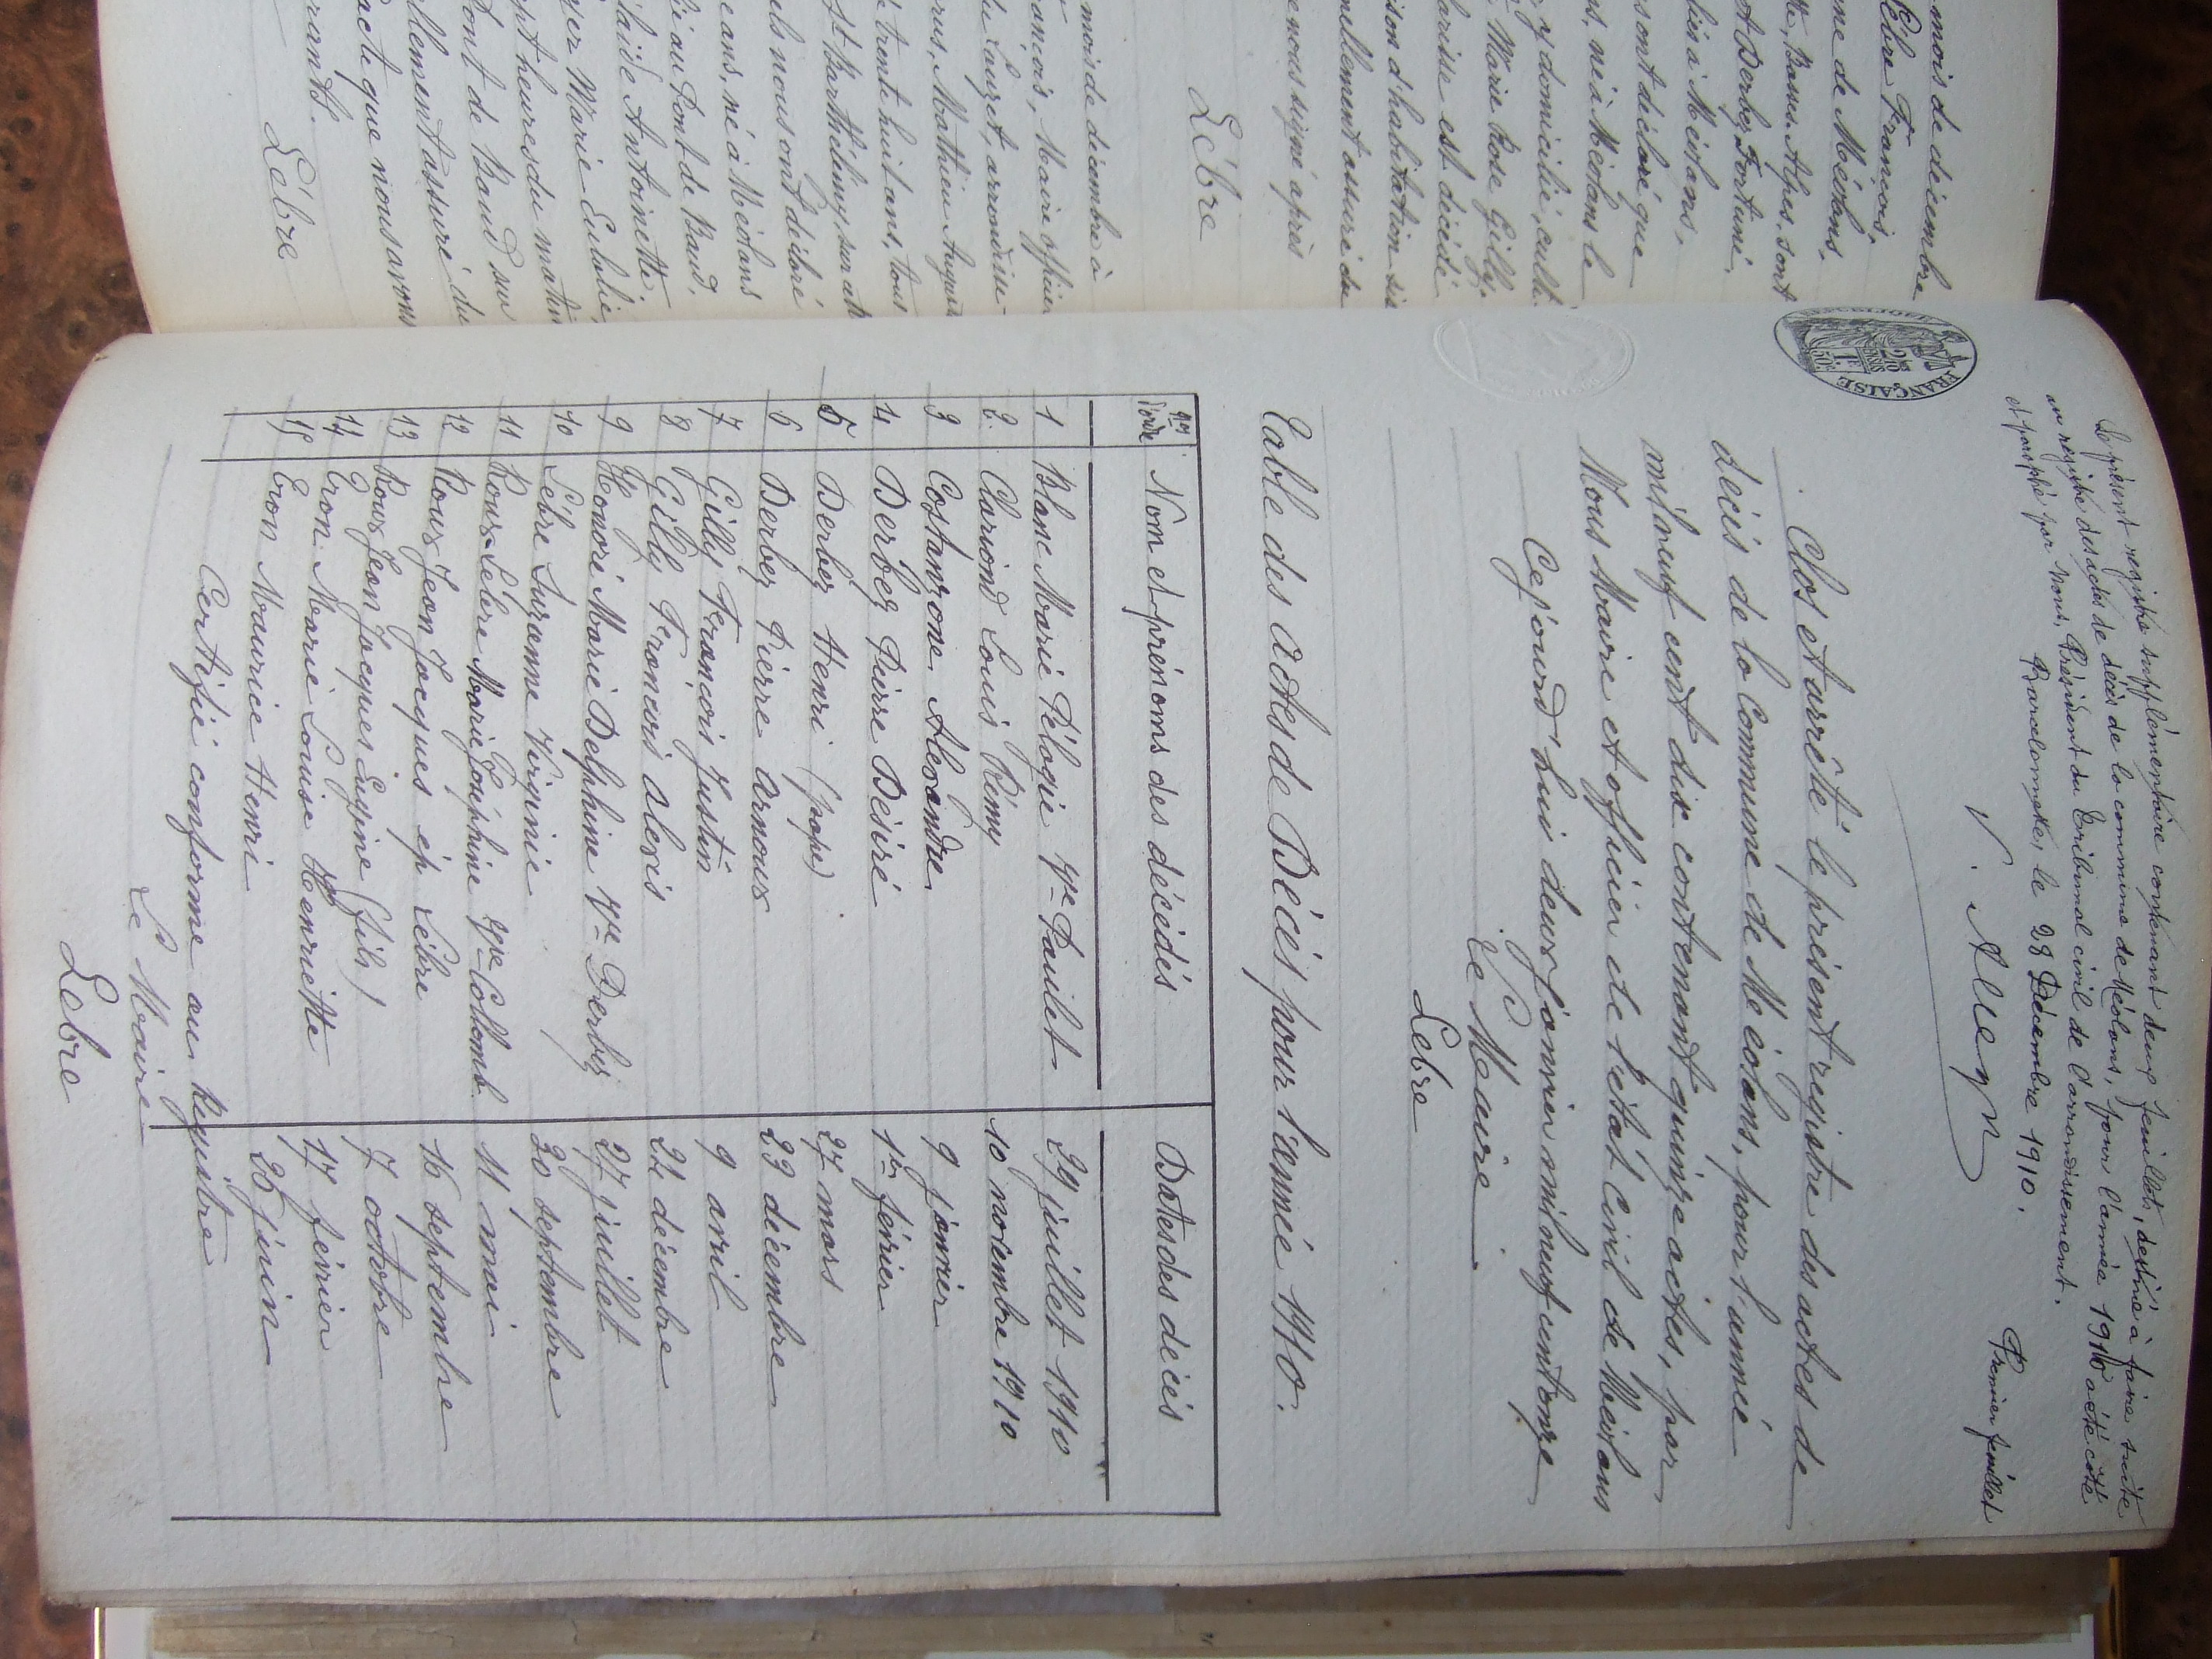 mois de décembre
Lèbre François,
me de Méolans,
Basses-Alpes, sont
t Derbez Fortuné,
à Méolans,
sont déclaré que
s, né à Méolans le
y domicilié, culti
Marie Rose Gilly,
larisse est décédé
ison d'habitation sis
nellement assuré du
nous signé après
Lèbre
mois de décembre à
rançois, Maire officier
du Lauzet, arrondis-
rus, Mathieu August
trente huit ans, tous
St Barthélémy, sur ab
ils nous ont déclaré
e ans, né à Méolans
ié au Pont de Baud,
laïde Antoinette,
yer Marie Eulalie,
pt heures du matin
Pont de Baud sur
llement assuré du
acte que nous avons
rants.
Lèbre
Le présent registre supplémentaire contenant deux feuillets, destiné à faire suite
au registre des actes de décès de la commune de Méolans, pour l'année 1910 a été coté
et paraphé par Nous, Président du Tribunal civil de l'arrondissement.
Barcelonnette, le 28 Décembre 1910.
Premier feuillet
FRANÇAISE
Clos et arrêté le présent registre des actes de
décès de la Commune de Méolans, pour l'année
mil neuf cent dix contenant quinze actes, par
Nous Maire et officier de l'état civil de Méolans
Cejourd'hui deux janvier mil neuf cent onze
Le Maire
Lèbre
Table des actes de Décès pour l'année 1910.
Nos d'ordre Nom et prénoms des décédés Dates des décès
1 Blanc Marie Pélagie Vve Paulet 29 juillet 1910
2 Clariond Louis Rémy 10 novembre 1910
3 Costanzone Alexandre 9 janvier
4 Derbez Pierre Désiré 1er février
5 Derbez Henri (pape) 27 mars
6 Derbez Pierre Arnoux 23 décembre
7 Gilly François Justin 9 avril
8 Gilly François Alexis 24 décembre
9 Honoré Marie Delphine Vve Derbez 27 juillet
10 Lèbre Suzanne Virginie 20 septembre
11 Roux Lèbre Marie Joséphine Vve Collomb 11 mai
12 Roux Jean Jacques ép Lèbre 16 septembre
13 Roux Jean Jacques Eugène (fils) 7 octobre
14 Tron Marie Louise Henriette 17 février
15 Tron Maurice Henri 26 juin
Certifié conforme au Registre
Le Maire
Lèbre